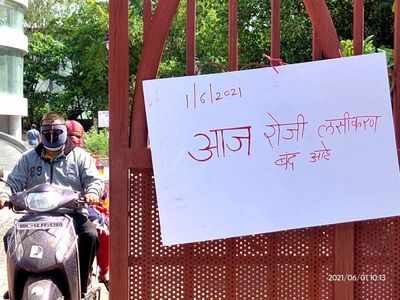 1/6/2021
आज रोजी लसीकरण
बंद आहे
2021/06/01 10:13